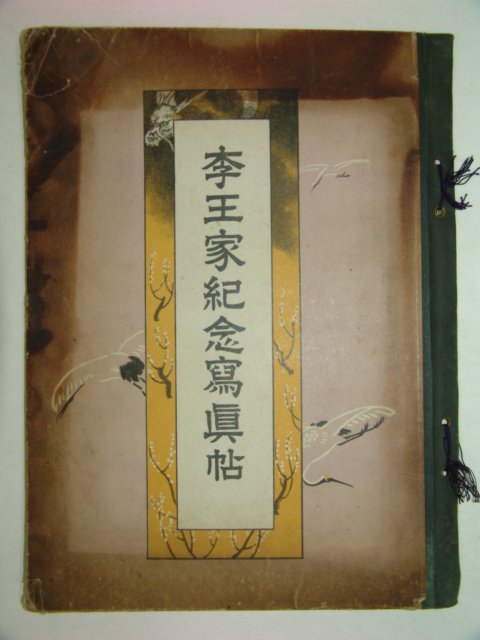 李王家紀念寫眞帖